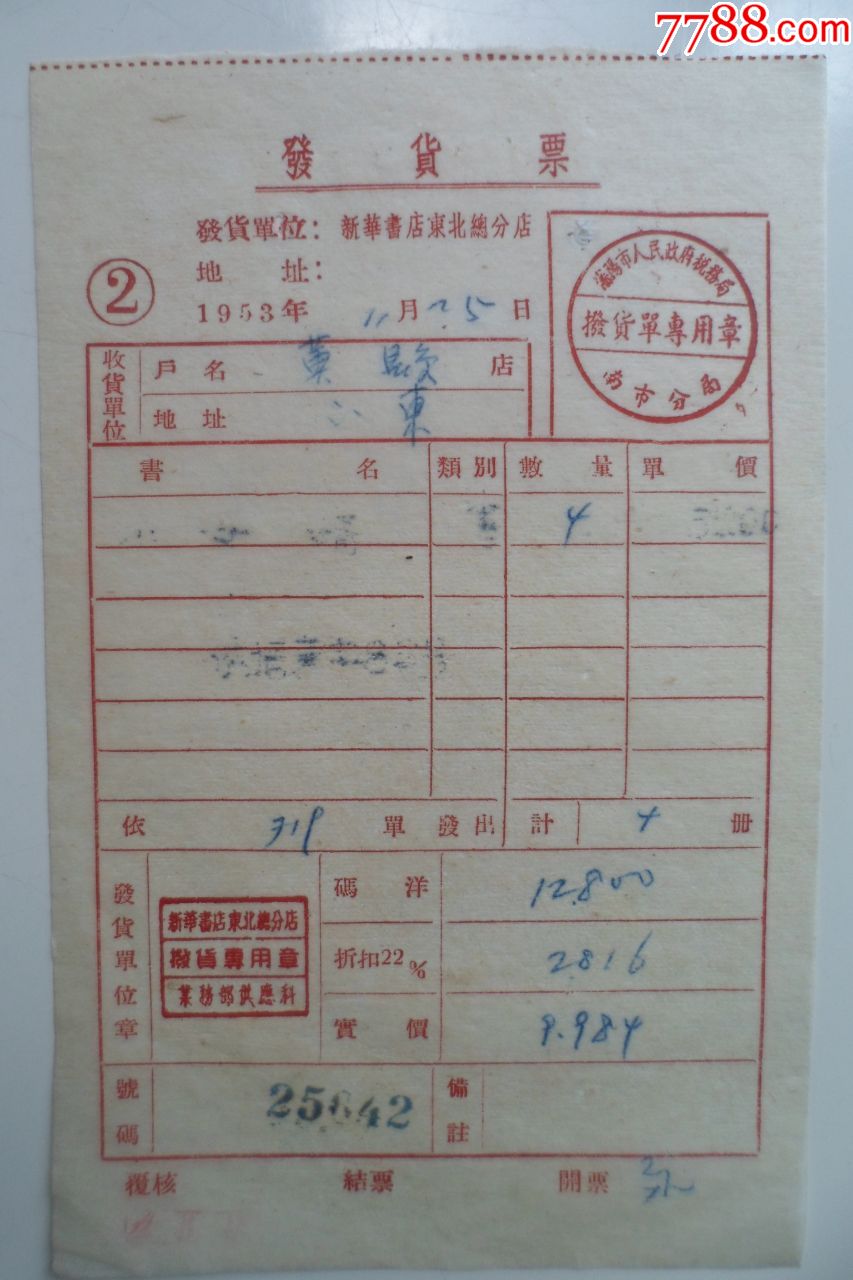 7788.com
發貨票
發貨單位：新華書店東北總分店
地址：
② 1953年 11月25日
瀋陽市人民政府稅務局
撥貨單專用章
南市分局
收貨單位
戶名 店
地址 東
書名 類別 數量 單價
4
依 719 單發出 計 4 冊
發貨單位章
新華書店東北總分店
撥貨專用章
業務部供應科
碼洋 12800
折扣22% 2816
實價 9.984
號碼 25642 備註
覆核 結票 開票